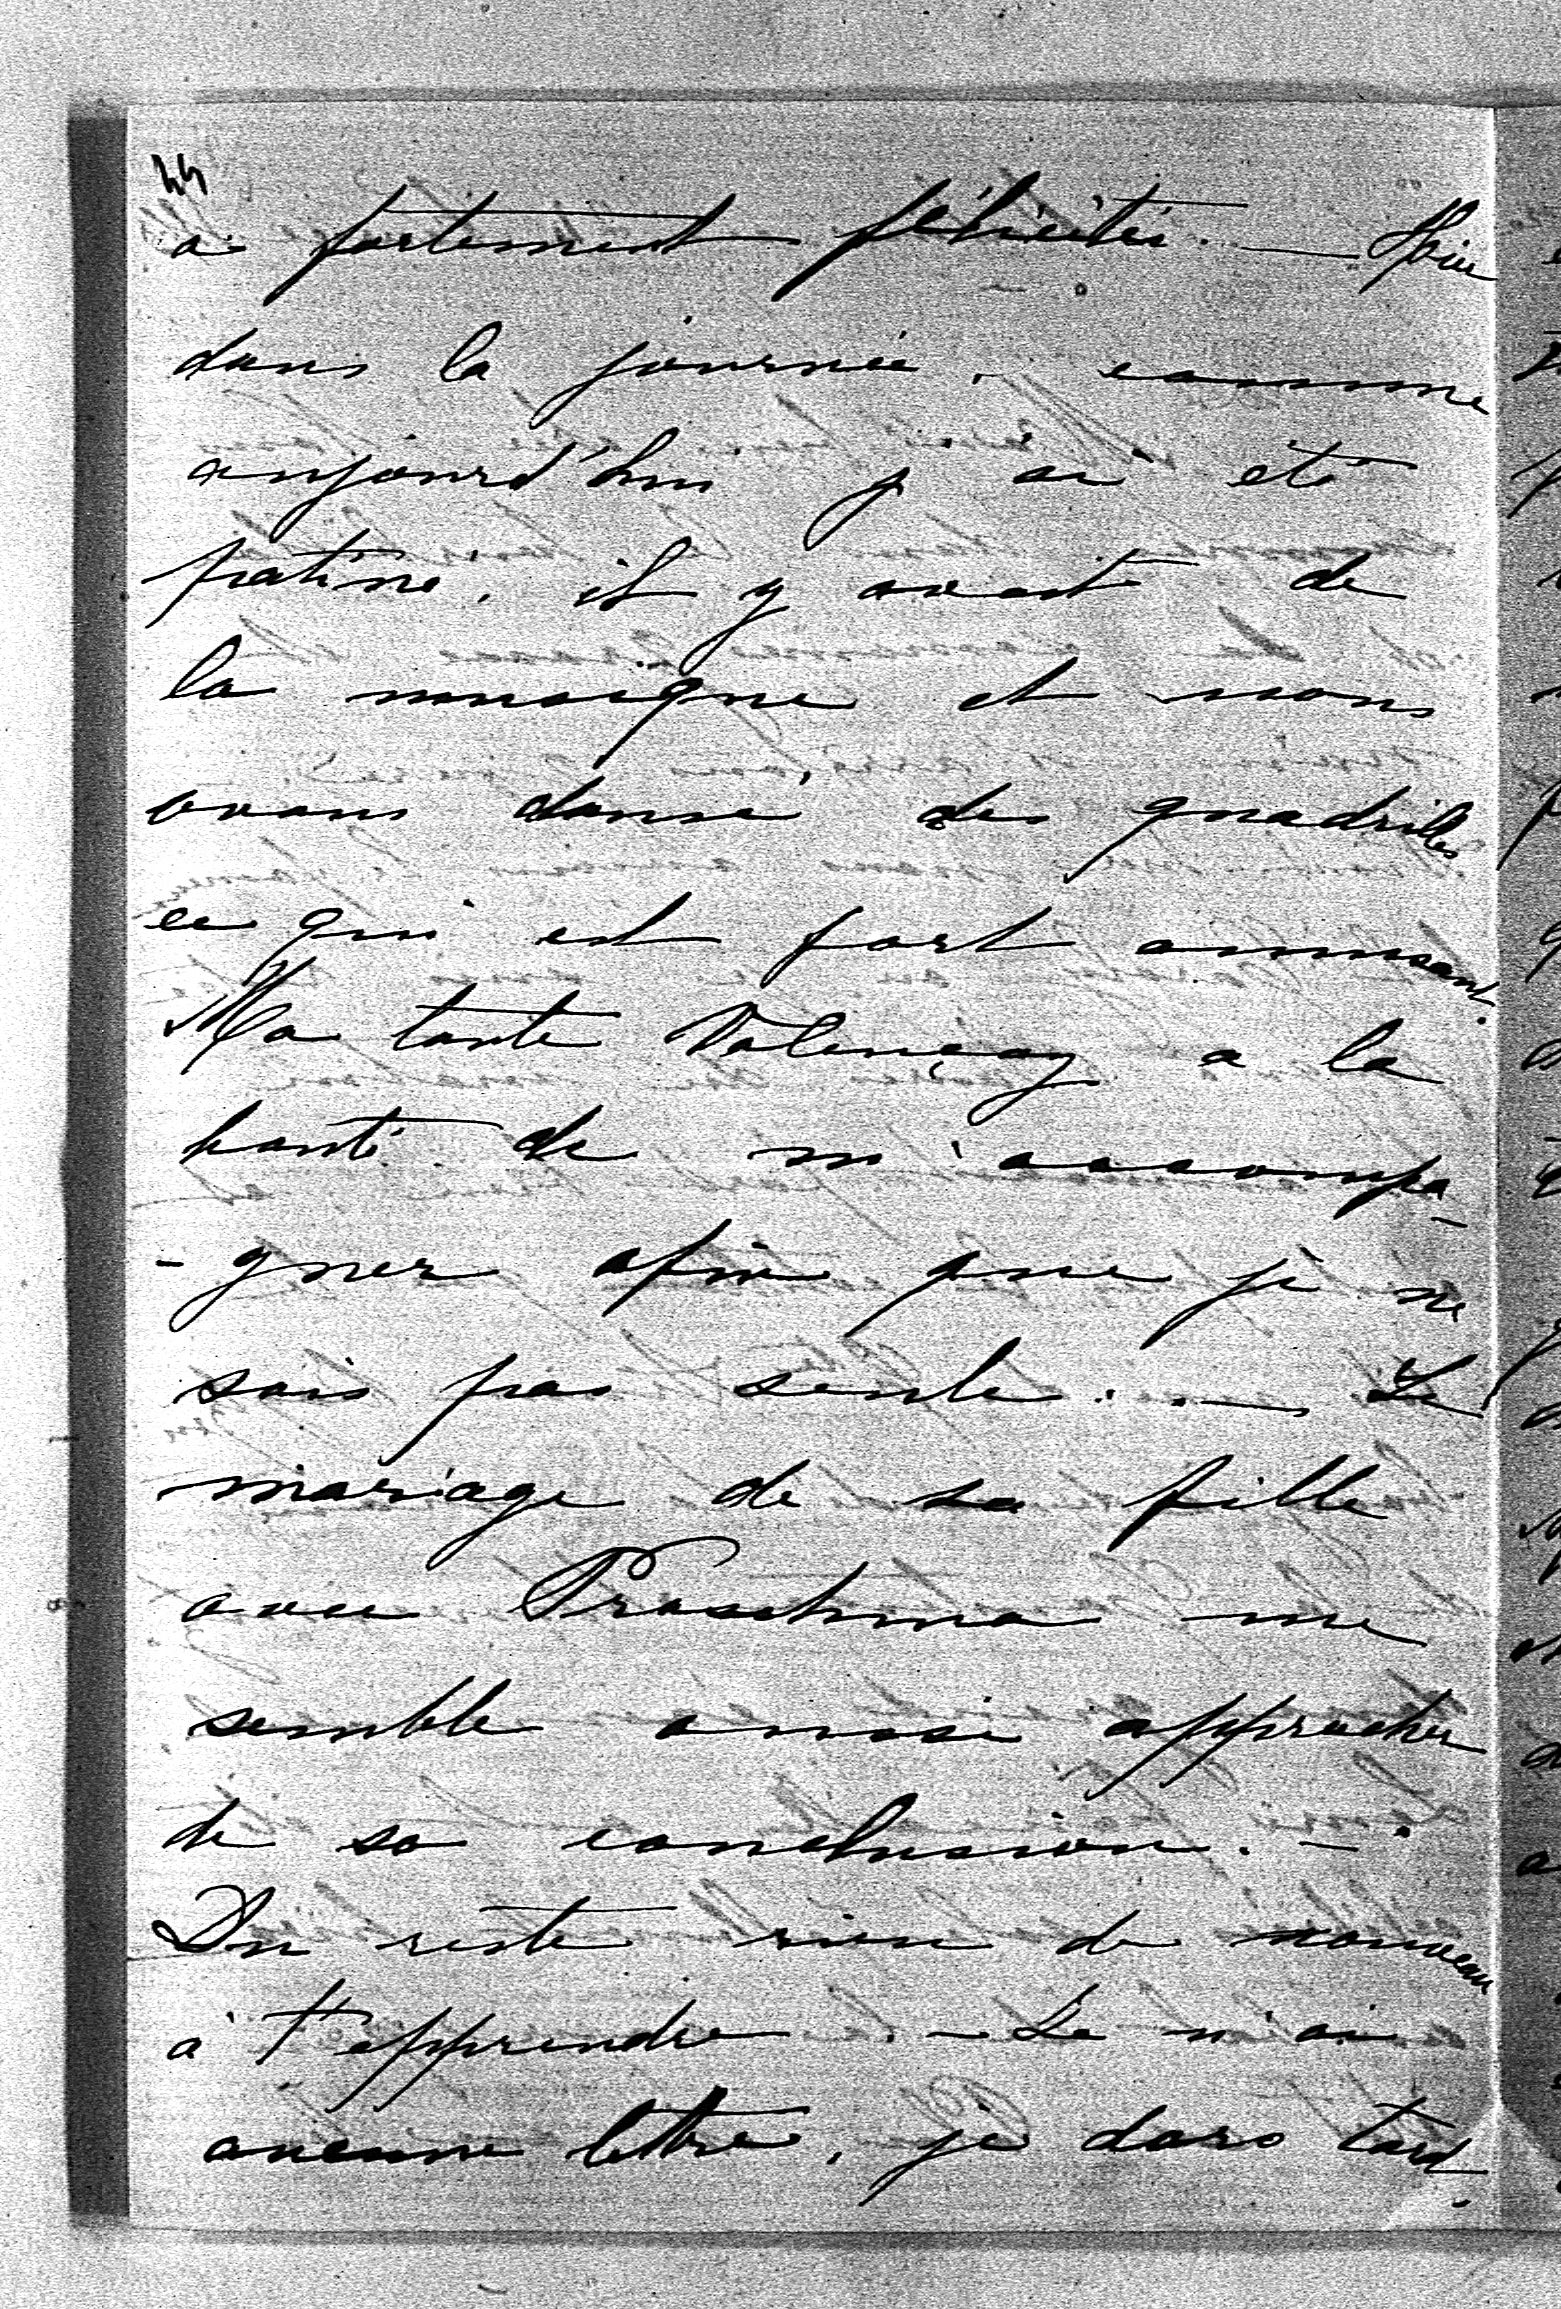 44
a fortement félicités. — Hier
dans la journée, comme
aujourd'hui j'ai été
patiné, il y avait de
la musique et nous
avons dansé des quadrilles
ce qui est fort amusant.
Ma tante Valençay a la
bonté de m'accompa-
-gner afin que je ne
sois pas seule. — Le
mariage de sa fille
avec Proschma me
semble aussi approcher
de sa conclusion. —
Du reste rien de nouveau
à t'apprendre. — Je n'ai
aucune lettre, je dors tard.